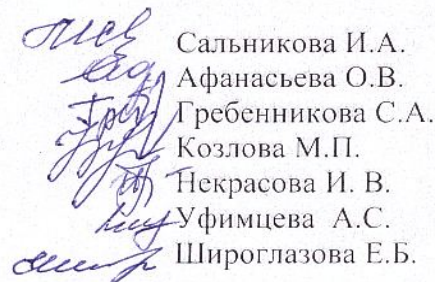 Сальникова И.А.
Афанасьева О.В.
Гребенникова С.А.
Козлова М.П.
Некрасова И. В.
Уфимцева А.С.
Широглазова Е.Б.